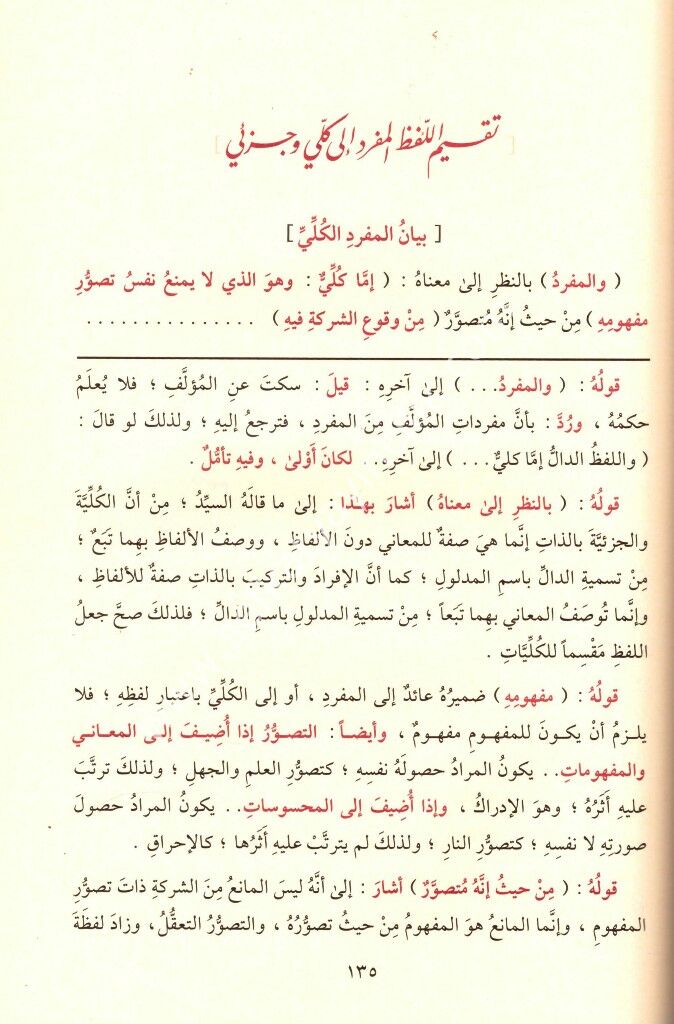 [ تقسيم اللفظ المفرد إلى كلّي وجزئي ]
[ بيانُ المفردِ الكُلِّيِّ ]
( والمفردُ ) بالنظرِ إلىٰ معناهُ : ( إمَّا كُلِّيٌّ : وهوَ الذي لا يمنعُ نفسُ تصوُّرِ
مفهومِهِ ) مِنْ حيثُ إنَّهُ مُتصوَّرٌ ( مِنْ وقوعِ الشركةِ فيهِ ) . . . . . . . . . . . . . . .
قولُهُ : ( والمفردُ . . . ) إلىٰ آخرِهِ : قيلَ : سكتَ عنِ المُؤلَّفِ ؛ فلا يُعلَمُ
حكمُهُ ، ورُدَّ : بأنَّ مفرداتِ المُؤلَّفِ مِنَ المفردِ ، فترجعُ إليهِ ؛ ولذلكَ لو قالَ :
( واللفظُ الدالُّ إمَّا كليٌّ . . . ) إلىٰ آخرِهِ . . لكانَ أَوْلىٰ ، وفيهِ تأمُّلٌ .
قولُهُ : ( بالنظرِ إلىٰ معناهُ ) أشارَ بهـٰذا : إلىٰ ما قالَهُ السيِّدُ ؛ مِنْ أنَّ الكُلِّيَّةَ
والجزئيَّةَ بالذاتِ إنَّما هيَ صفةٌ للمعاني دونَ الألفاظِ ، ووصفُ الألفاظِ بهِما تَبَعٌ ؛
مِنْ تسميةِ الدالِّ باسمِ المدلولِ ؛ كما أنَّ الإفرادَ والتركيبَ بالذاتِ صفةٌ للألفاظِ ،
وإنَّما تُوصَفُ المعاني بهِما تَبَعاً ؛ مِنْ تسميةِ المدلولِ باسمِ الدالِّ ؛ فلذلكَ صحَّ جعلُ
اللفظِ مَقْسِماً للكُلِّيَّاتِ .
قولُهُ : ( مفهومِهِ ) ضميرُهُ عائدٌ إلى المفردِ ، أو إلى الكُلِّيِّ باعتبارِ لفظِهِ ؛ فلا
يلـزمُ أنْ يكـونَ للمفهومِ مفهـومٌ ، وأيضـاً : التصـوُّرُ إذا أُضِيـفَ إلـى المعـانـي
والمفهوماتِ . . يكونُ المرادُ حصولَهُ نفسِهِ ؛ كتصوُّرِ العلمِ والجهلِ ؛ ولذلكَ ترتَّبَ
عليهِ أثَرُهُ ؛ وهوَ الإدراكُ ، وإذا أُضِيفَ إلى المحسوساتِ . . يكونُ المرادُ حصولَ
صورتِهِ لا نفسِهِ ؛ كتصوُّرِ النارِ ؛ ولذلكَ لم يترتَّبْ عليهِ أثَرُها ؛ كالإحراقِ .
قولُهُ : ( مِنْ حيثُ إنَّهُ مُتصوَّرٌ ) أشارَ : إلىٰ أنَّهُ ليسَ المانعُ مِنَ الشركةِ ذاتَ تصوُّرِ
المفهومِ ، وإنَّما المانعُ هوَ المفهومُ مِنْ حيثُ تصوُّرُهُ ، والتصوُّرُ التعقُّلُ ، وزادَ لفظَةَ
١٣٥